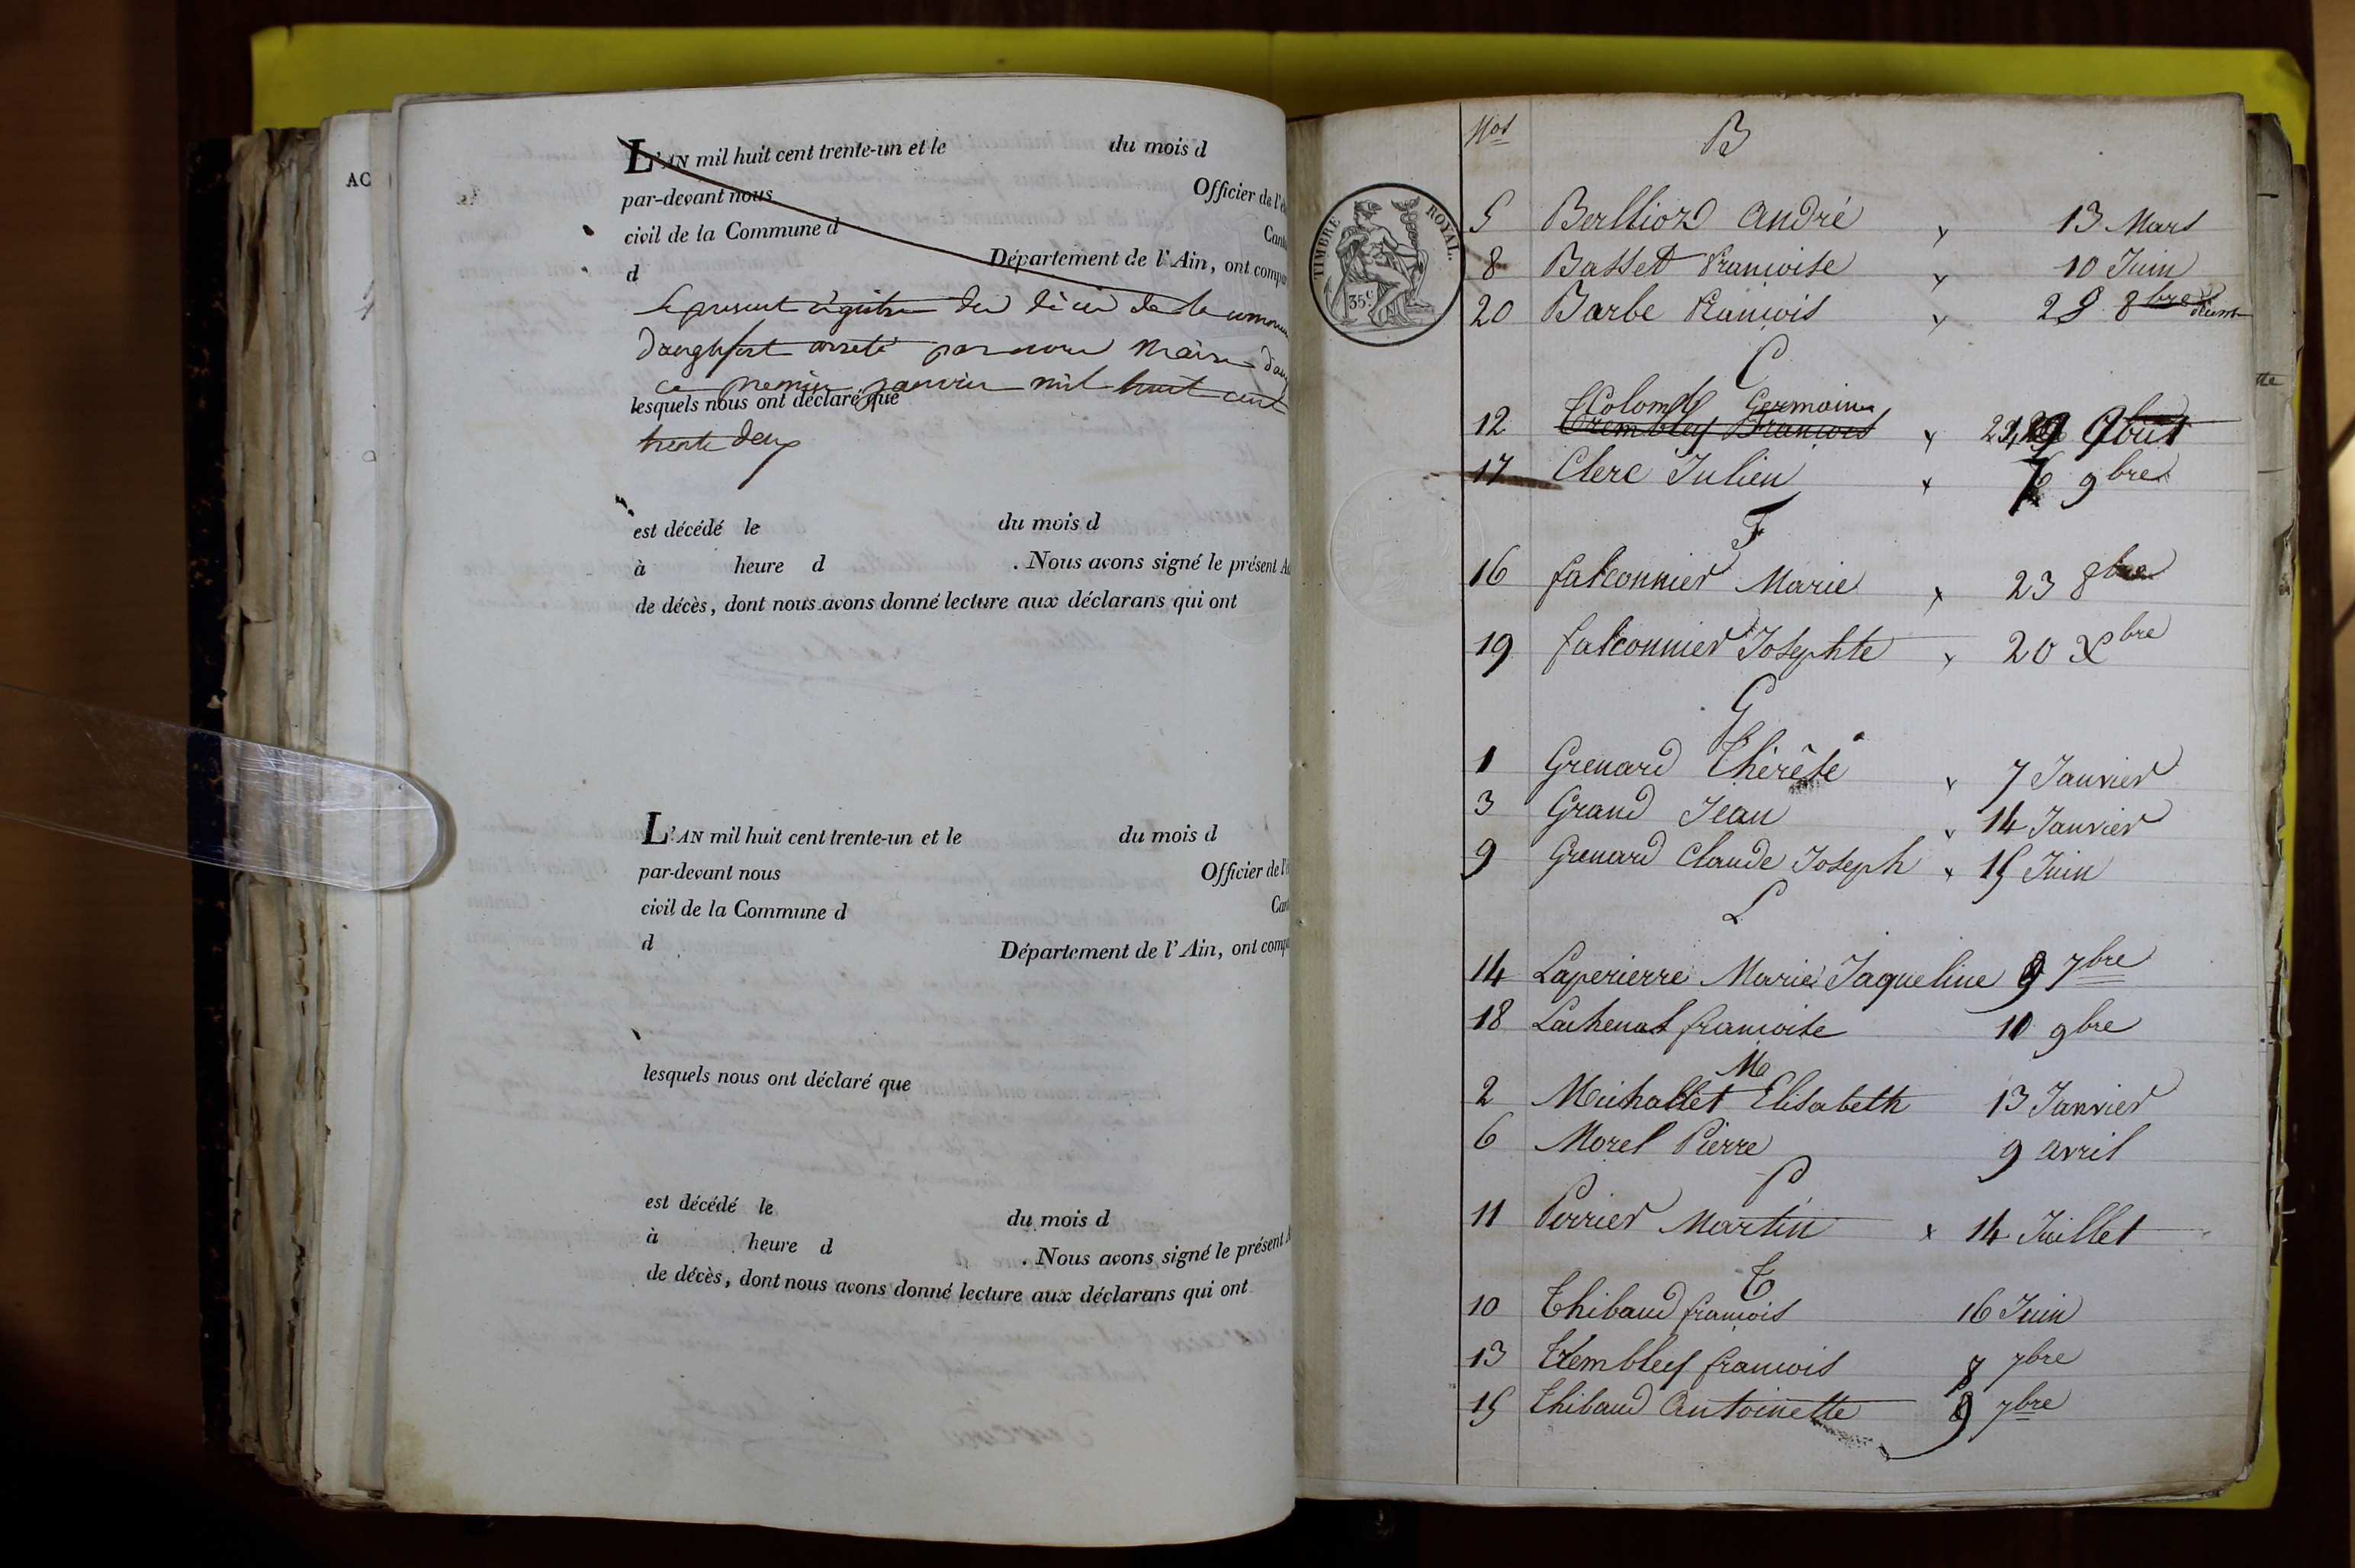 AC
L'AN mil huit cent trente-un et le du mois d
par-devant nous Officier de l'é
civil de la Commune d Cant
d Département de l'Ain, ont compa
Le present régistre des décès de la commune
d'anglefort arreté par nous Maire d'ang
ce premier janvier mil huit cent
lesquels nous ont déclaré que
trente deux
est décédé le du mois d
à heure d . Nous avons signé le présent A
de décès, dont nous avons donné lecture aux déclarans qui ont
L'AN mil huit cent trente-un et le du mois d
par-devant nous Officier de l'é
civil de la Commune d Can
d Département de l'Ain, ont compa
lesquels nous ont déclaré que
est décédé le du mois d
à heure d . Nous avons signé le présent A
de décès, dont nous avons donné lecture aux déclarans qui ont
TIMBRE ROYAL.
35 c
Nos B
5 Berlliozd André 13 Mars
8 Basset francoise 10 Juin
20 Barbe francois 28 8bre
C
Colomb Germaine
12 Trembley Francois Août
17 Clerc Julien 9bre
F
16 falconnier Marie 23 8bre
19 falconnier Josephte 20 Xbre
G
1 Grenard Thérêse 7 Janvier
3 Grand Jean 14 Janvier
9 Grenard Claude Joseph 15 Juin
L
14 Laperierre Marie Jaqueline 9 7bre
18 Lachenal francoise 10 9bre
M
2 Michallet Elisabeth 13 Janvier
6 Morel Pierre 9 avril
P
11 Perrier Martin 14 Juillet
T
10 Thibaud francois 16 Juin
13 Trembley francois 8 7bre
15 Thibaud Antoinette 9 7bre